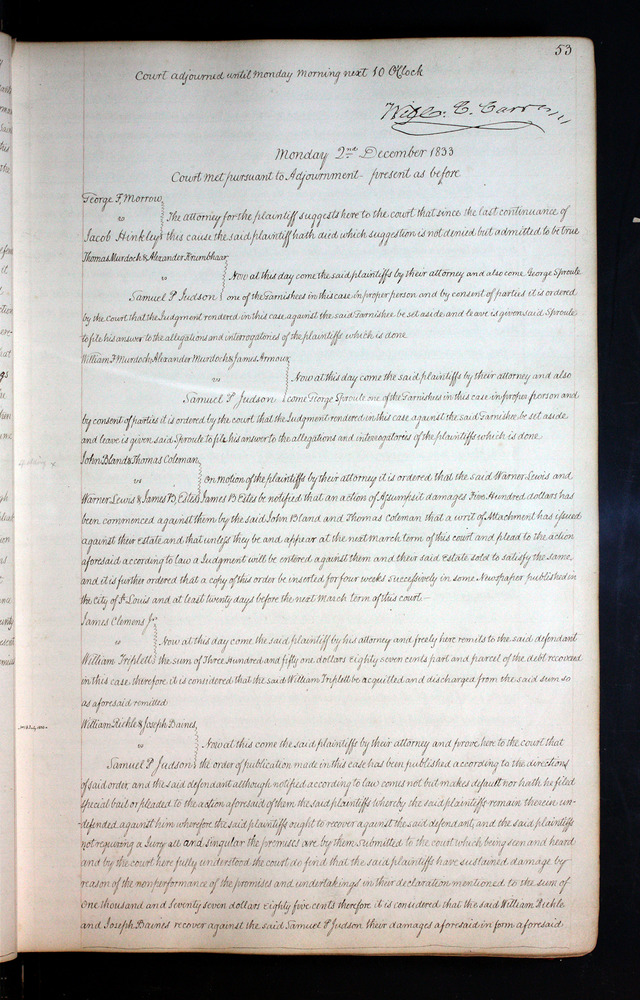 53
Court adjourned until Monday Morning next 10 O'Clock
Wm. C. Carr
Monday 2nd December 1833
Court met pursuant to Adjournment - present as before
George F. Morrow
vs The attorney for the plaintiff suggests here to the court that since the last continuance of
Jacob Hinkley this cause the said plaintiff hath died which suggestion is not denied but admitted to be true
Thomas Murdoch & Alexander Krumbhaar
vs Now at this day come the said plaintiffs by their attorney and also come George Sproule
Samuel P Judson one of the Garnishees in this case in proper person and by consent of parties it is ordered
by the court that the Judgment rendered in this case against the said Garnishee be set aside and leave is given said Sproule
to file his answer to the allegations and interrogatories of the plaintiffs which is done
William F Murdoch, Alexander Murdoch & James Armour
vs Now at this day come the said plaintiffs by their attorney and also
Samuel P. Judson come George Sproule one of the Garnishees in this case in proper person and
by consent of parties it is ordered by the court that the Judgment rendered in this case against the said Garnishee be set aside
and leave is given said Sproule to file his answer to the allegations and interrogatories of the plaintiffs which is done
John Bland & Thomas Coleman
vs On motion of the plaintiffs by their attorney it is ordered that the said Warner Lewis and
Warner Lewis & James B. Estes James B Estes be notified that an action of Assumpsit damages Five Hundred dollars has
been commenced against them by the said John Bland and Thomas Coleman that a writ of Attachment has issued
against their estate and that unless they be and appear at the next March term of this court and plead to the action
aforesaid according to law a Judgment will be entered against them and their said estate sold to satisfy the same
and it is further ordered that a copy of this order be inserted for four weeks successively in some Newspaper published in
the city of St Louis and at least twenty days before the next March term of this court -
James Clemens Jr
vs Now at this day come the said plaintiff by his attorney and freely here remits to the said defendant
William Triplett the sum of Three Hundred and fifty one dollars eighty seven cents part and parcel of the debt recovered
in this case therefore it is considered that the said William Triplett be acquitted and discharged from the said sum so
as aforesaid remitted
William Rickle & Joseph Baines
vs Now at this come the said plaintiffs by their attorney and prove here to the court that
Samuel P. Judson the order of publication made in this case has been published according to the directions
of said order, and the said defendant although notified according to law comes not but makes default nor hath he filed
special bail or pleaded to the action aforesaid of them the said plaintiffs whereby the said plaintiffs remain therein un-
-defended against him wherefore the said plaintiffs ought to recover against the said defendant, and the said plaintiffs
not requiring a Jury all and singular the premises are by them submitted to the court which being seen and heard
and by the court here fully understood the court do find that the said plaintiffs have sustained damage by
reason of the nonperformance of the promises and undertakings in their declaration mentioned to the sum of
One thousand and Seventy seven dollars eighty five cents therefore it is considered that the said William Rickle
and Joseph Baines recover against the said Samuel P Judson their damages aforesaid in form aforesaid